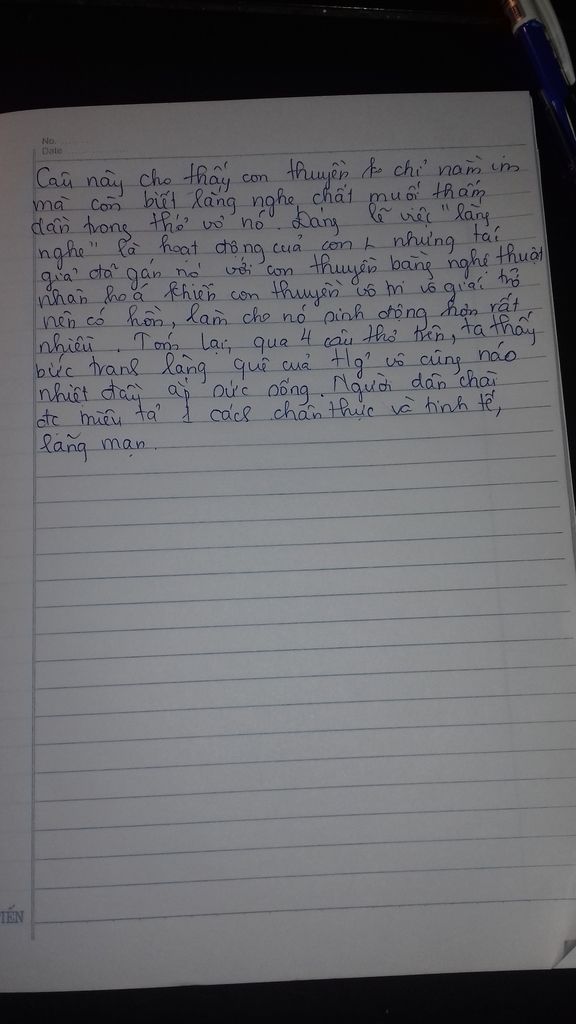 No. ........
Date
Câu này cho thấy con thuyền k chỉ nằm im
mà còn biết lắng nghe, chất muối thấm
dần trong thớ vỏ nó. Đáng lẽ việc "lắng
nghe" là hoạt động của con nhưng tác
giả đã gán nó với con thuyền bằng nghệ thuật
nhân hoá khiến con thuyền vô tri vô giác trở
nên có hồn, làm cho nó sinh động hơn rất
nhiều. Tóm lại, qua 4 câu thơ trên, ta thấy
bức tranh làng quê của vô cùng náo
nhiệt đầy ắp sức sống. Người dân chài
đc miêu tả 1 cách chân thực và tinh tế,
lãng mạn.
TIẾN